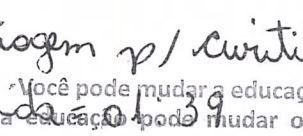 agem p/ Curiti
Você pode mudar a educaç
da = 01:39
a educação pode mudar o